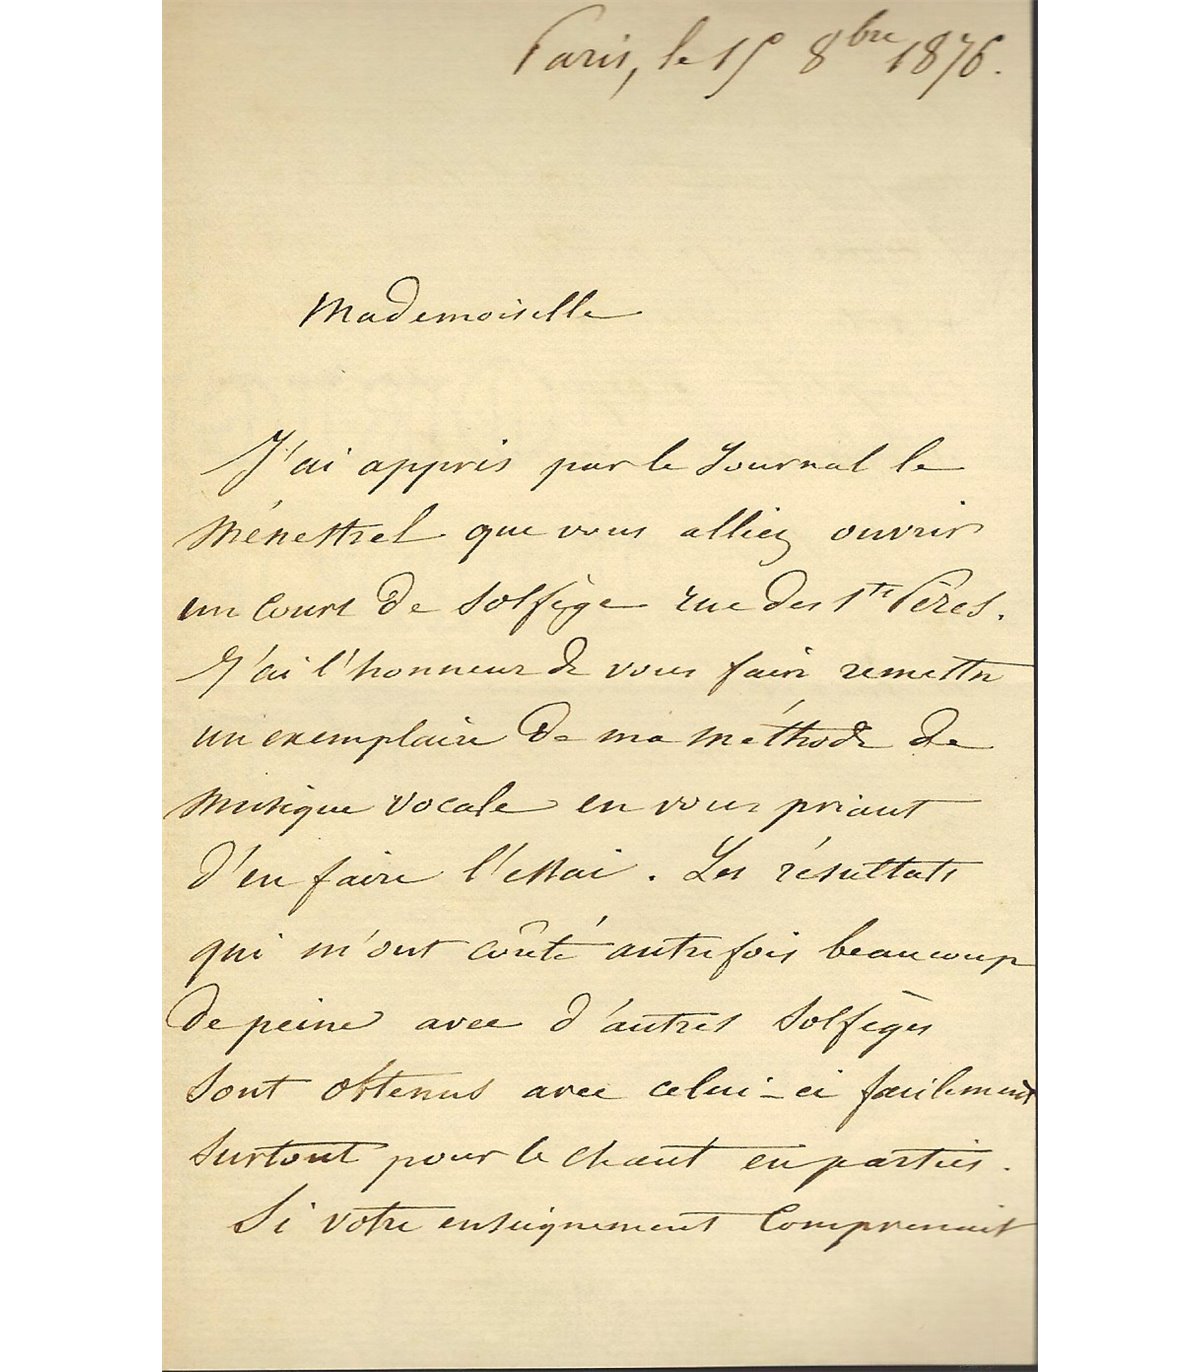 Paris, le 15 8bre 1876.
Mademoiselle
J'ai appris par le Journal le
Ménestrel que vous alliez ouvrir
un cours de solfège rue des Sts Pères.
J'ai l'honneur de vous faire remettre
un exemplaire de ma méthode de
musique vocale en vous priant
d'en faire l'essai. Les résultats
qui m'ont coûté autrefois beaucoup
de peine avec d'autres solfèges
sont obtenus avec celui-ci facilement
surtout pour le chant en parties.
Si votre enseignement comprenait